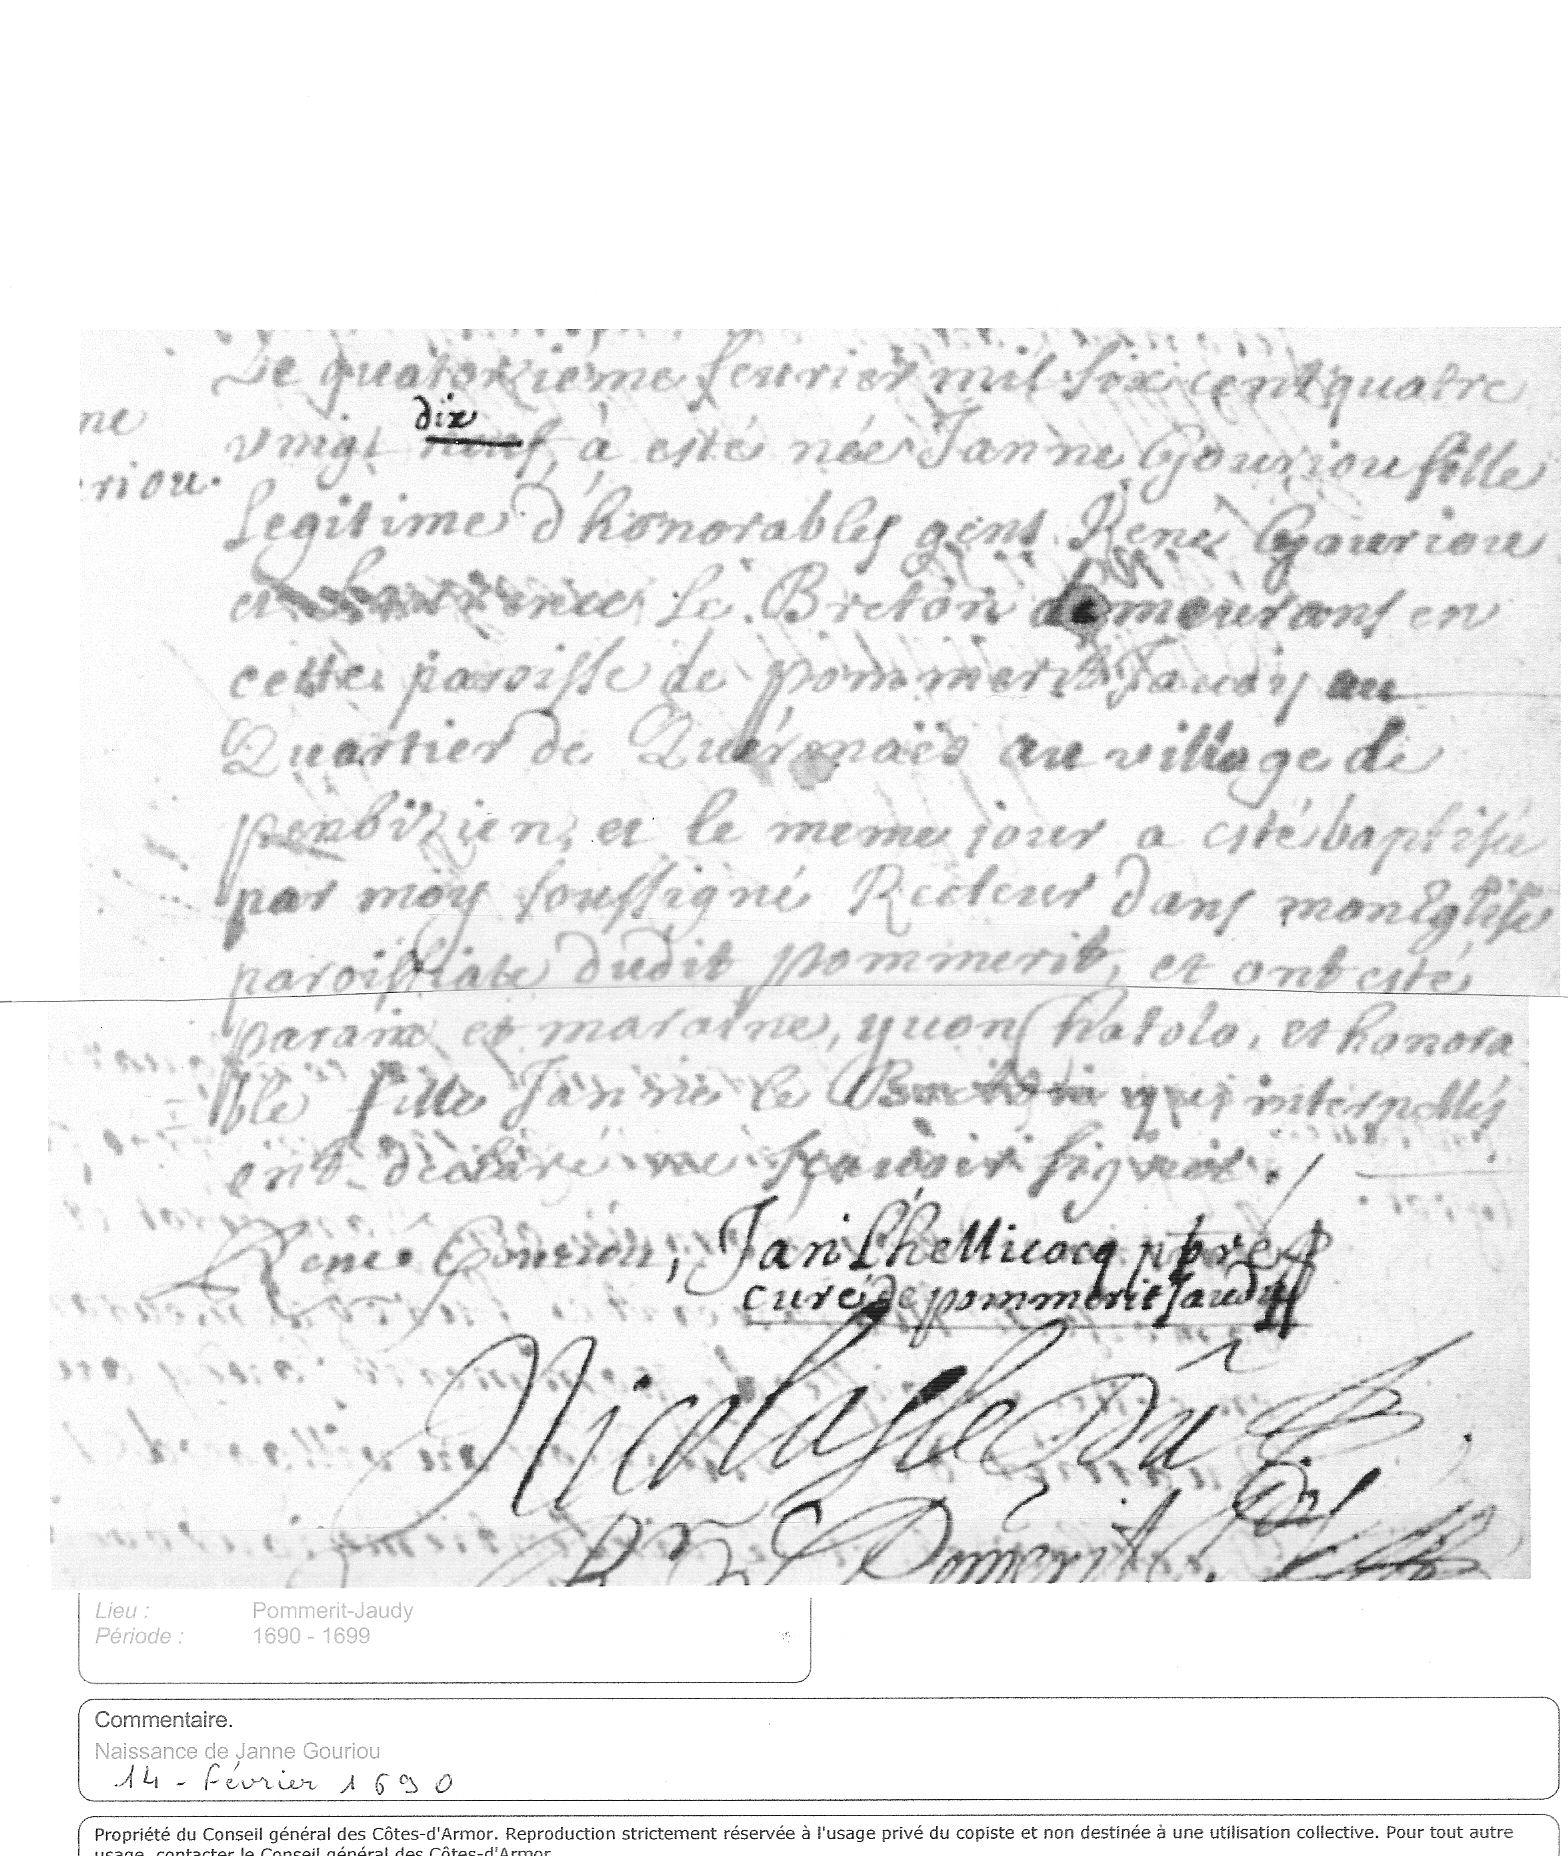 Le quatorzieme feurier mil six cent quatre
ne
dix
vingt neuf, à esté née Janne Gouriou fille
riou.
Legitime d'honorables gens René Gouriou
et Le Breton demeurans en
cette paroisse de pommerit Jaudy au
Quartier de Querenaës au village de
penbizien, et le meme jour a esté baptisée
par moy soussigné Recteur dans mon Eglise
paroissiale dudit pommerit, et ont esté
parain et maraine, yuon Chatolo, et honora
ble fille Janne le Breton qui interpellés
ont declaré ne sçauoir signer.
René Gouriou, Jan pbre
curé de pommerit Jaudy
Nicolas le
Pomerit
Lieu : Pommerit-Jaudy
Période : 1690 - 1699
Commentaire.
Naissance de Janne Gouriou
14 - février 1690
Propriété du Conseil général des Côtes-d'Armor. Reproduction strictement réservée à l'usage privé du copiste et non destinée à une utilisation collective. Pour tout autre
usage, contacter le Conseil général des Côtes-d'Armor